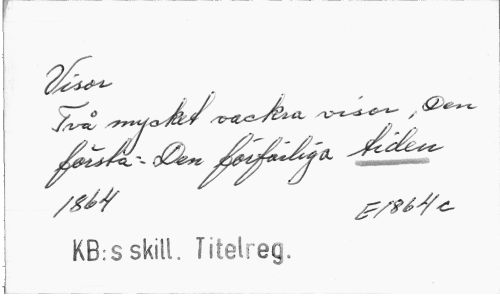 Visor
Två mycket vackra visor, Den
första:- Den förfärliga tiden
1864
E1864c
KB:s skill. Titelreg.